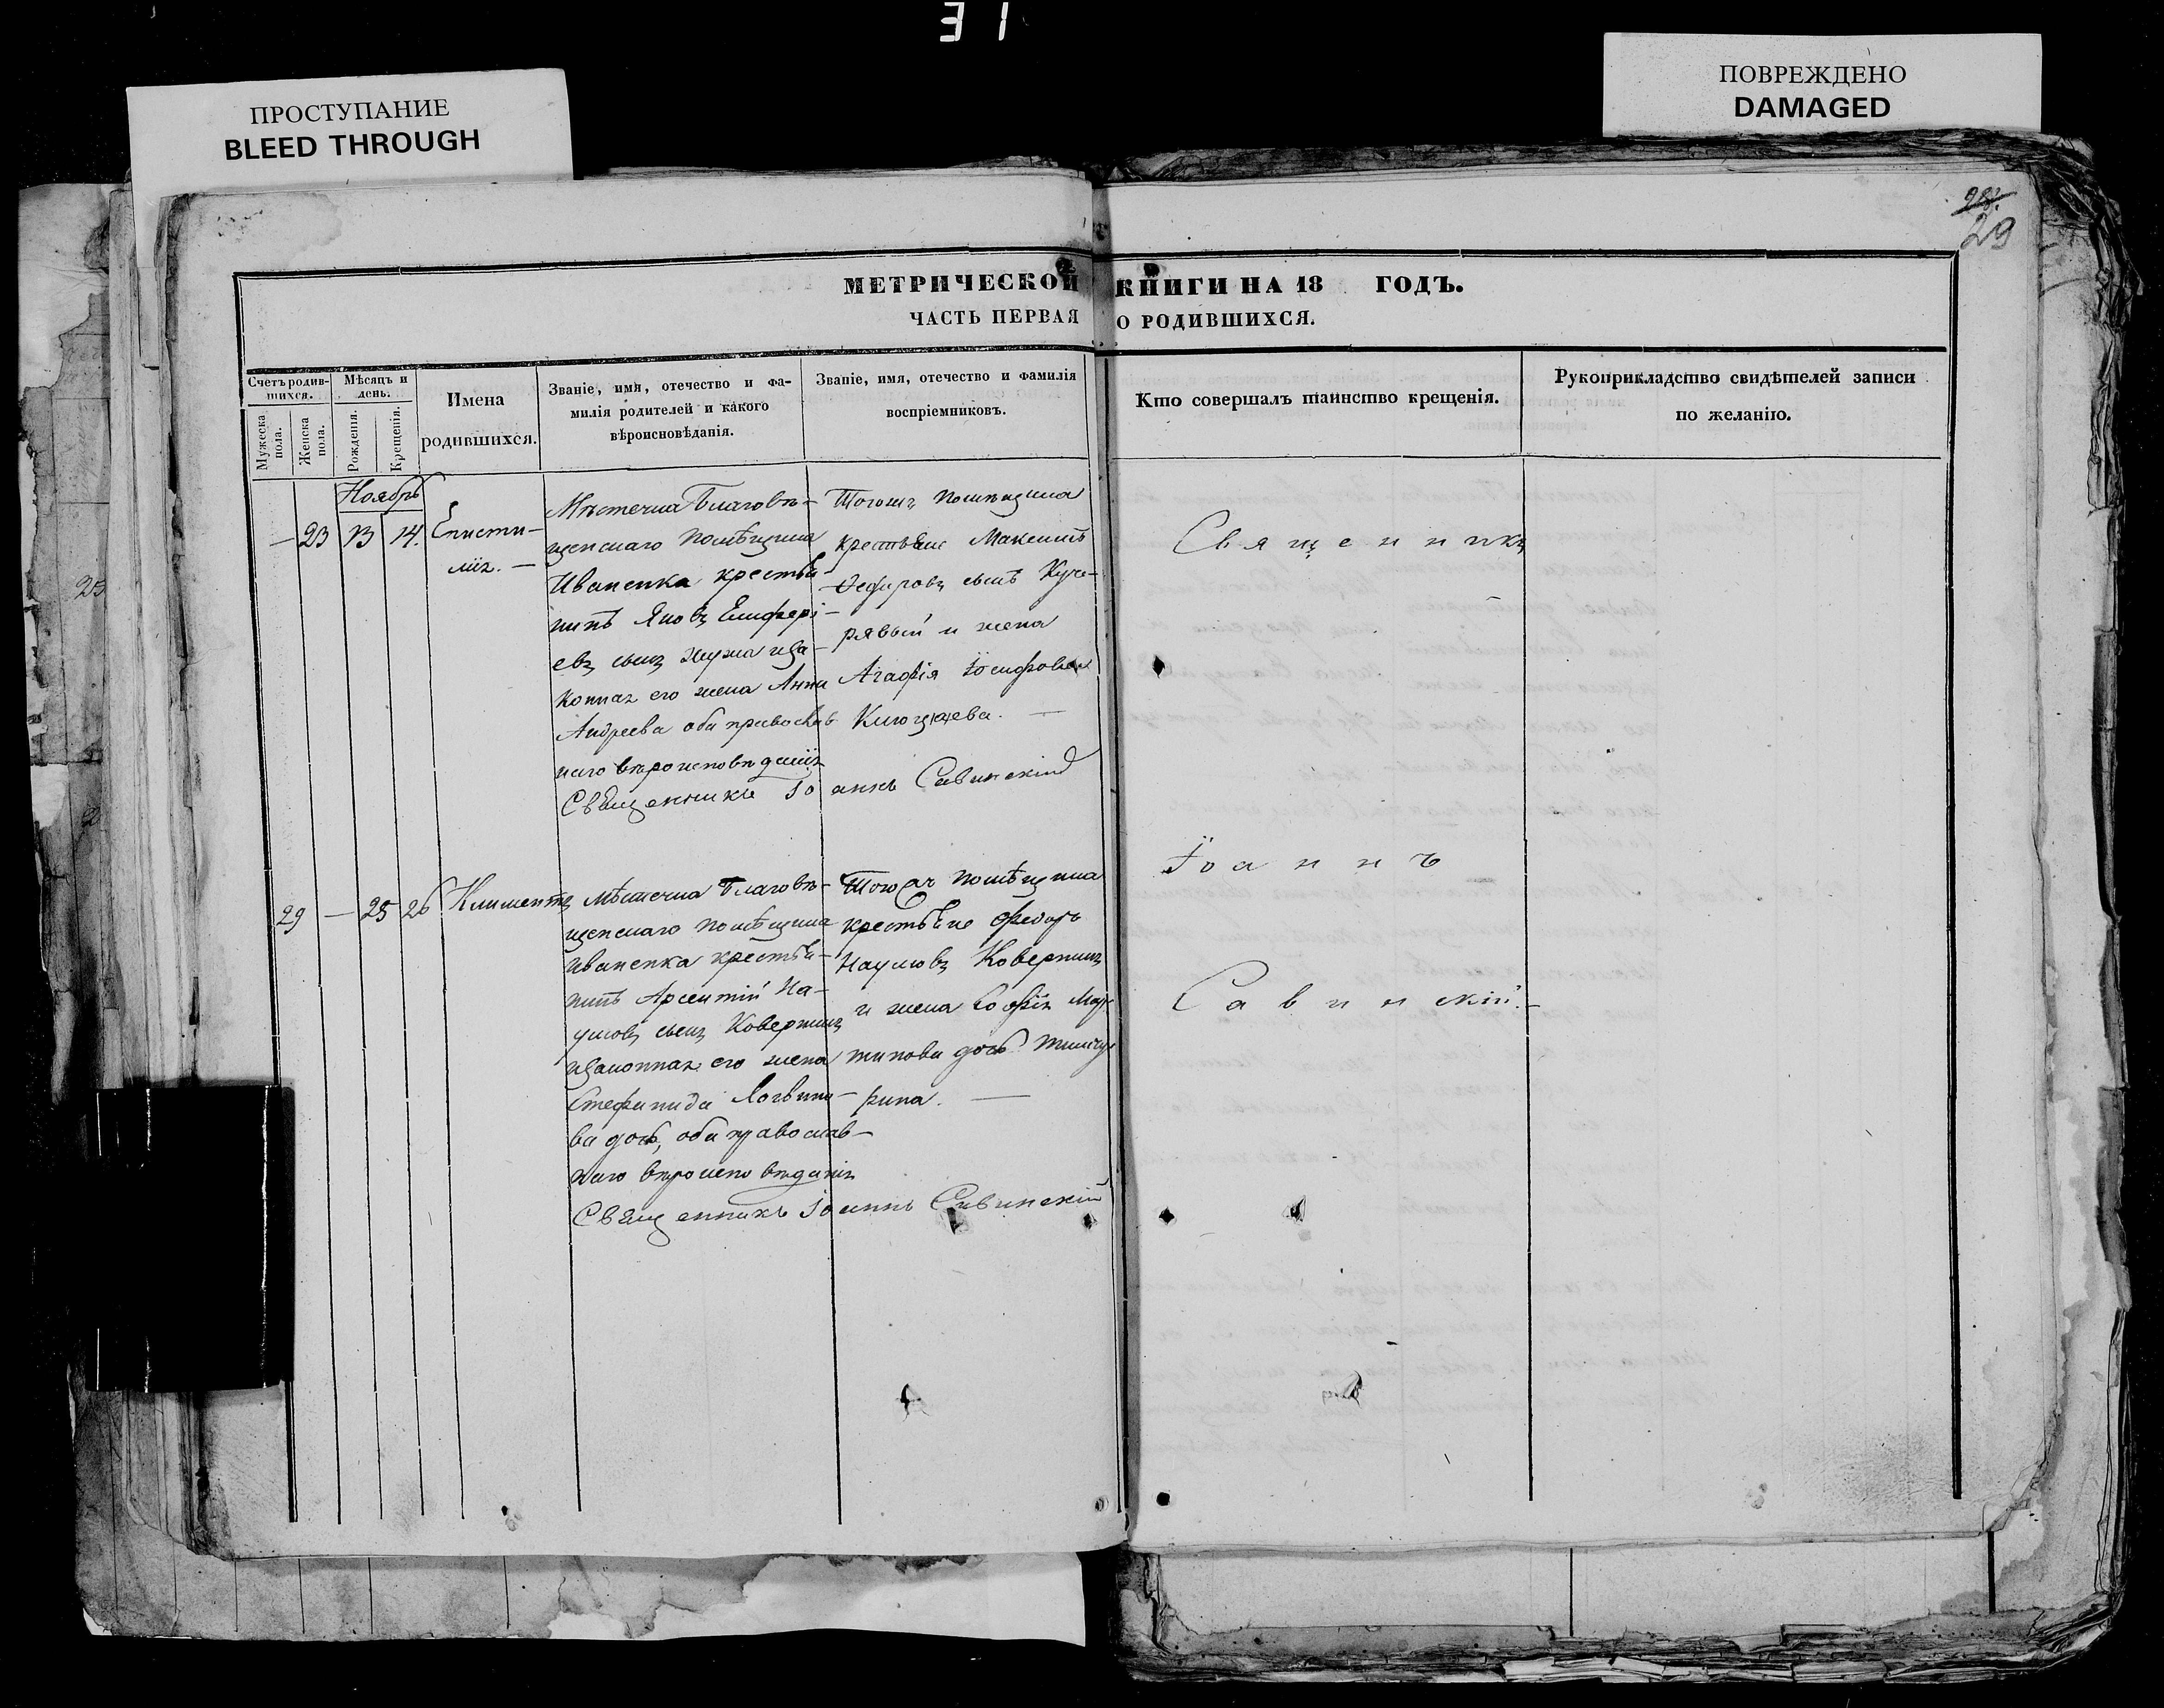 31
ПРОСТУПАНИЕ
BLEED THROUGH
ПОВРЕЖДЕНО
DAMAGED
28.
29
МЕТРИЧЕСКОЙ КНИГИ НА 18 ГОДЪ.
ЧАСТЬ ПЕРВАЯ О РОДИВШИХСЯ.
Счетъ родив-
шихся.
Мужеска пола.
Женска пола.
Мѣсяцъ и
день.
Рожденія.
Крещенія.
Имена
родившихся.
Званіе, имя, отечество и фа-
милія родителей и какого
вѣроисповѣданія.
Званіе, имя, отечество и фамилія
воспріемниковъ.
Кто совершалъ таинство крещенія.
Рукоприкладство свидѣтелей записи
по желанію.
Ноябрь
— 23 13 14.
Еписти-
мія. —
Мѣстечка Благовѣ-
щенскаго помѣщика
Иваненка крестья-
нинъ Яковъ
евъ сынъ
его жена Анна
Андреева оба православ
наго вѣроисповѣданія
Священникъ Іоаннъ Савинскій
Тогожъ помѣщика
крестьяне Максимъ
Федоровъ сынъ Куче-
рявый и жена
Агафія Іосифова
Священникъ
Іоаннъ
Савинскій. —
29 — 25 26
Климентъ
Мѣстечка Благовѣ-
щенскаго помѣщика
Иваненка крестья-
нинъ Арсентій На-
умовъ сынъ
его жена
Стефанида Логвино-
ва дочь, оба православ-
наго вѣроисповѣданія
Священникъ Іоаннъ Савинскій
Тогожъ помѣщика
крестьяне Федоръ
Наумовъ
и жена Софія Мар
тинова дочь
рина. —